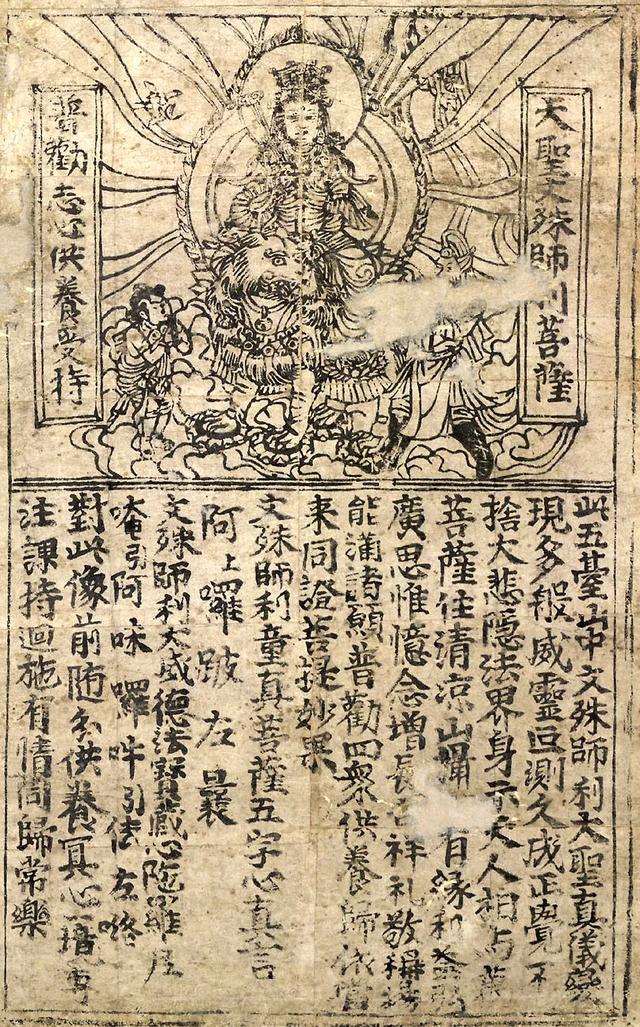 大聖文殊師利菩薩
普勸志心供養受持
此五臺山中文殊師利大聖真儀變
現多般威靈叵測久成正覺不
捨大悲隱法界身示天人相与萬
菩薩住清涼山攝有緣利益弘
廣思惟憶念增長吉祥礼敬稱揚
能滿諸願普勸四衆供養歸依當
来同證菩提妙果
文殊師利童真菩薩五字心真言
阿上囉 跛 左 曩
文殊師利大威德法寶藏心陁羅尼
唵引阿味囉吽引佉左咯
對此像前随分供養冥心一境專
注課持迴施有情同歸常樂